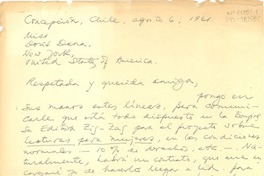 Concepción, Chile, agosto 6, 1961.
Miss
Doris Dana.
New York,
United States of America.
Respetada y querida amiga,
pongo en
sus manos estas líneas, para comuni-
carle que está todo dispuesto en la
Editora Zig-Zag para el proyecto sobre
Lecturas para mujeres, en las condiciones
normales — 10 % de derechos, etc. — Na-
turalmente, habrá un contrato, que
hacerlo llegar a Ud. para